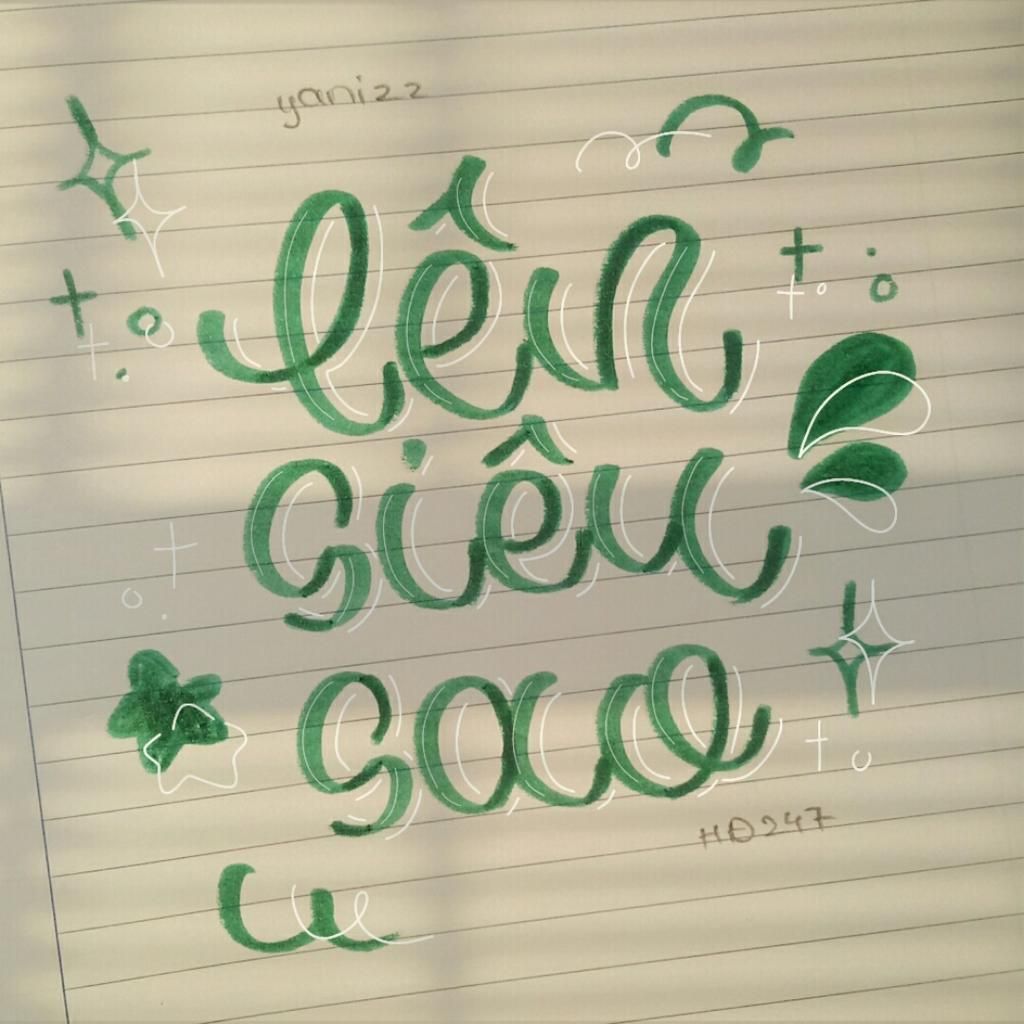 yanizz
lên
siêu
sao
HĐ247